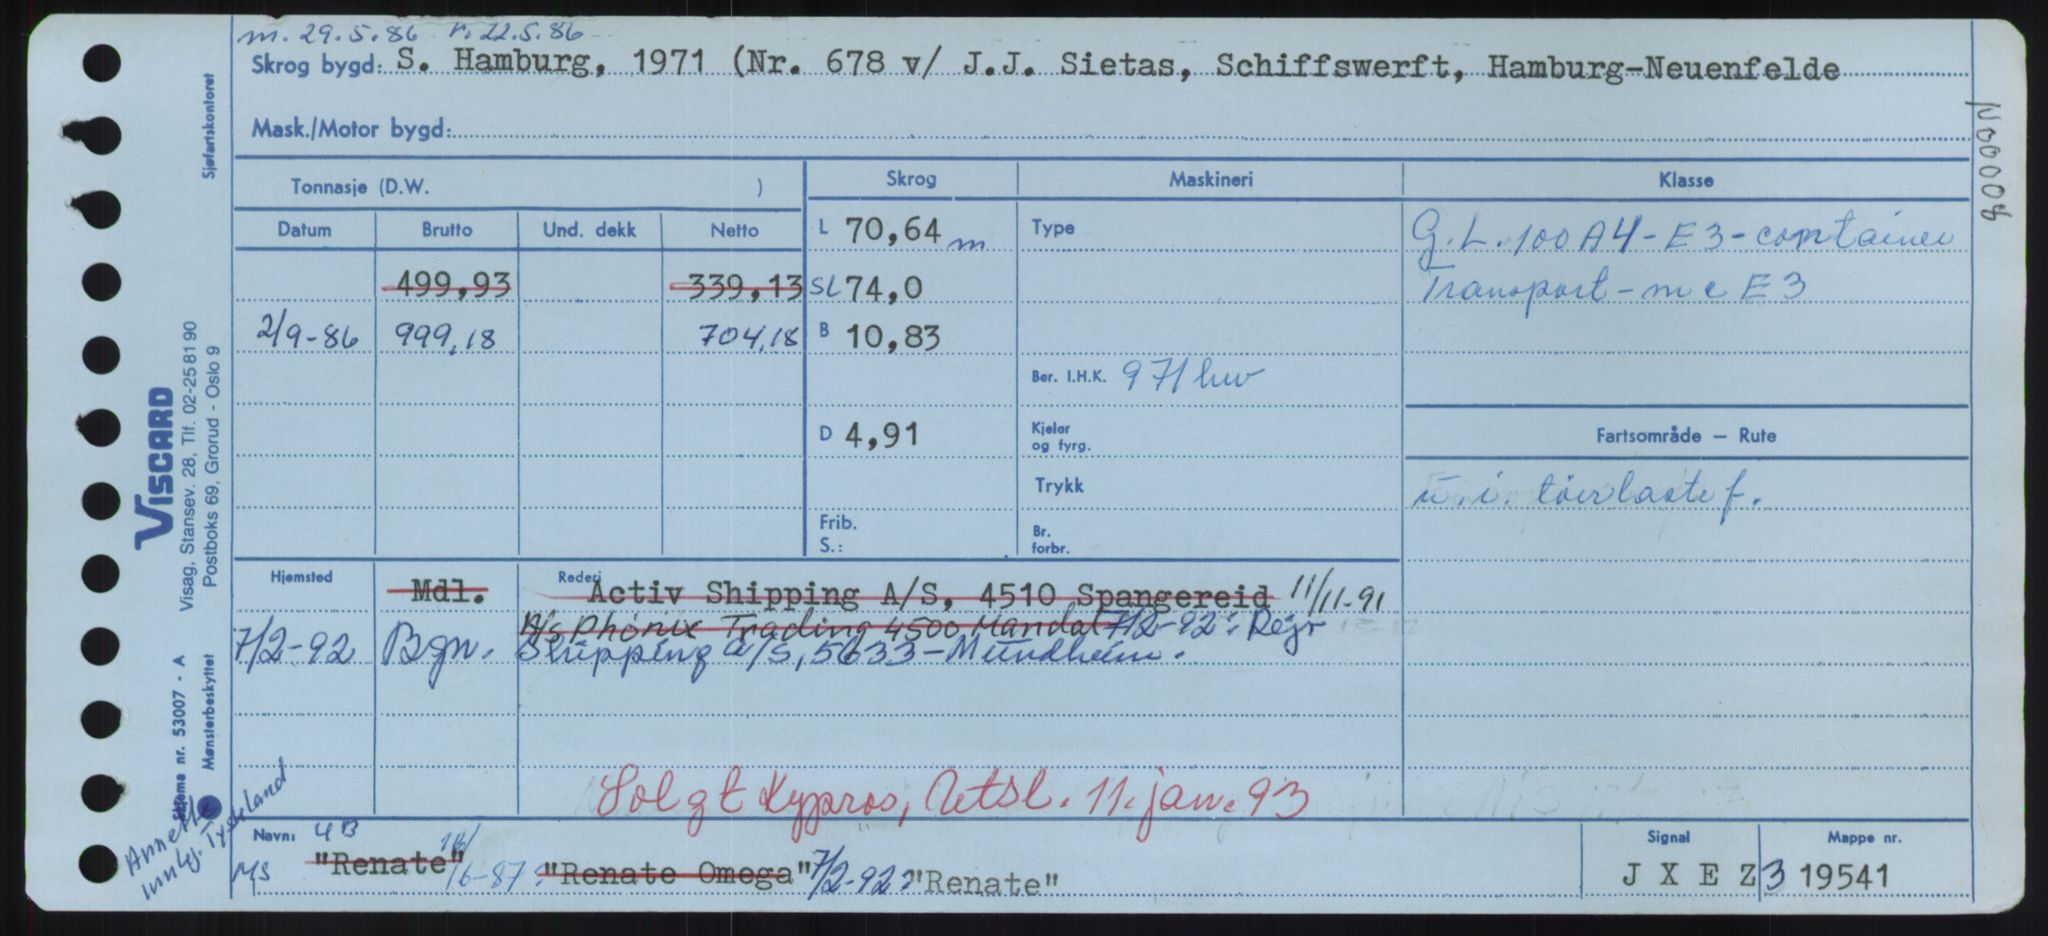 m. 29.5.86 r. 22.5.86
Skrog bygd: S. Hamburg, 1971 (Nr. 678 v/ J.J. Sietas, Schiffswerft, Hamburg-Neuenfelde
Mask./Motor bygd:
Tonnasje (D.W. )
Skrog
Maskineri
Klasse
Datum Brutto Und. dekk Netto
499,93 339,13
2/9-86 999,18 704,18
L 70,64 m
SL 74,0
B 10,83
D 4,91
Frib.
S.:
Type
Ber. I.H.K. 971 hw
Kjelar
og fyrg.
Trykk
Br.
forbr.
G.L. 100 A4 - E3 - container
Transport - mc E3
Fartsområde — Rute
u.i. tørlastef.
Hjemsted
Rederi
Mdl. Activ Shipping A/S, 4510 Spangereid 11/11-91
A/s Phönix Trading 4500 Mandal 7/2-92: Rejr
7/2-92 Bgn. Shipping a/s, 5633-Mundheim.
Solgt Kypros, Utsl. 11. jan. 93
Navn: 4B
MS "Renate" 16/6-87: "Renate Omega" 7/2-92: "Renate"
Signal
J X E Z 3
Mappe nr.
19541
N00008
Sjøfartskontoret
VISCARD
Visag, Stansev. 28, Tlf. 02-25 81 90
Postboks 69, Grorud - Oslo 9
Skjema nr. 53007 - A
Mønsterbeskyttet
Annette
innkj. Tyskland